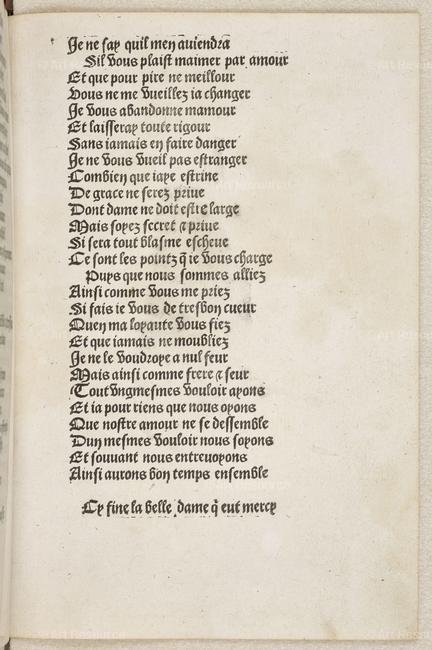 Je ne say quil men auiendra
Sil vous plaist maimer par amour
Et que pour pire ne meillour
Vous ne me vueillez ia changer
Je vous abandonne mamour
Et laisseray toute rigour
Sans iamais en faire danger
Je ne vous vueil pas estranger
Combien que iaye estrine
De grace ne serez priue
Dont dame ne doit estre large
Mais soyez secret ⁊ priue
Si sera tout blasme escheue
Ce sont les pointz q̄ ie vous charge
Puys que nous sommes alliez
Ainsi comme vous me priez
Si fais ie vous de tresbon cueur
Quen ma loyaute vous fiez
Et que iamais ne moubliez
Je ne le voudroye a nul feur
Mais ainsi comme frere ⁊ seur
Tout vngmesmes vouloir ayons
Et ia pour riens que nous oyons
Que nostre amour ne se dessemble
Dun mesmes vouloir nous soyons
Et souuant nous entreuoyons
Ainsi aurons bon temps ensemble
Cy fine la belle dame q̄ eut mercy